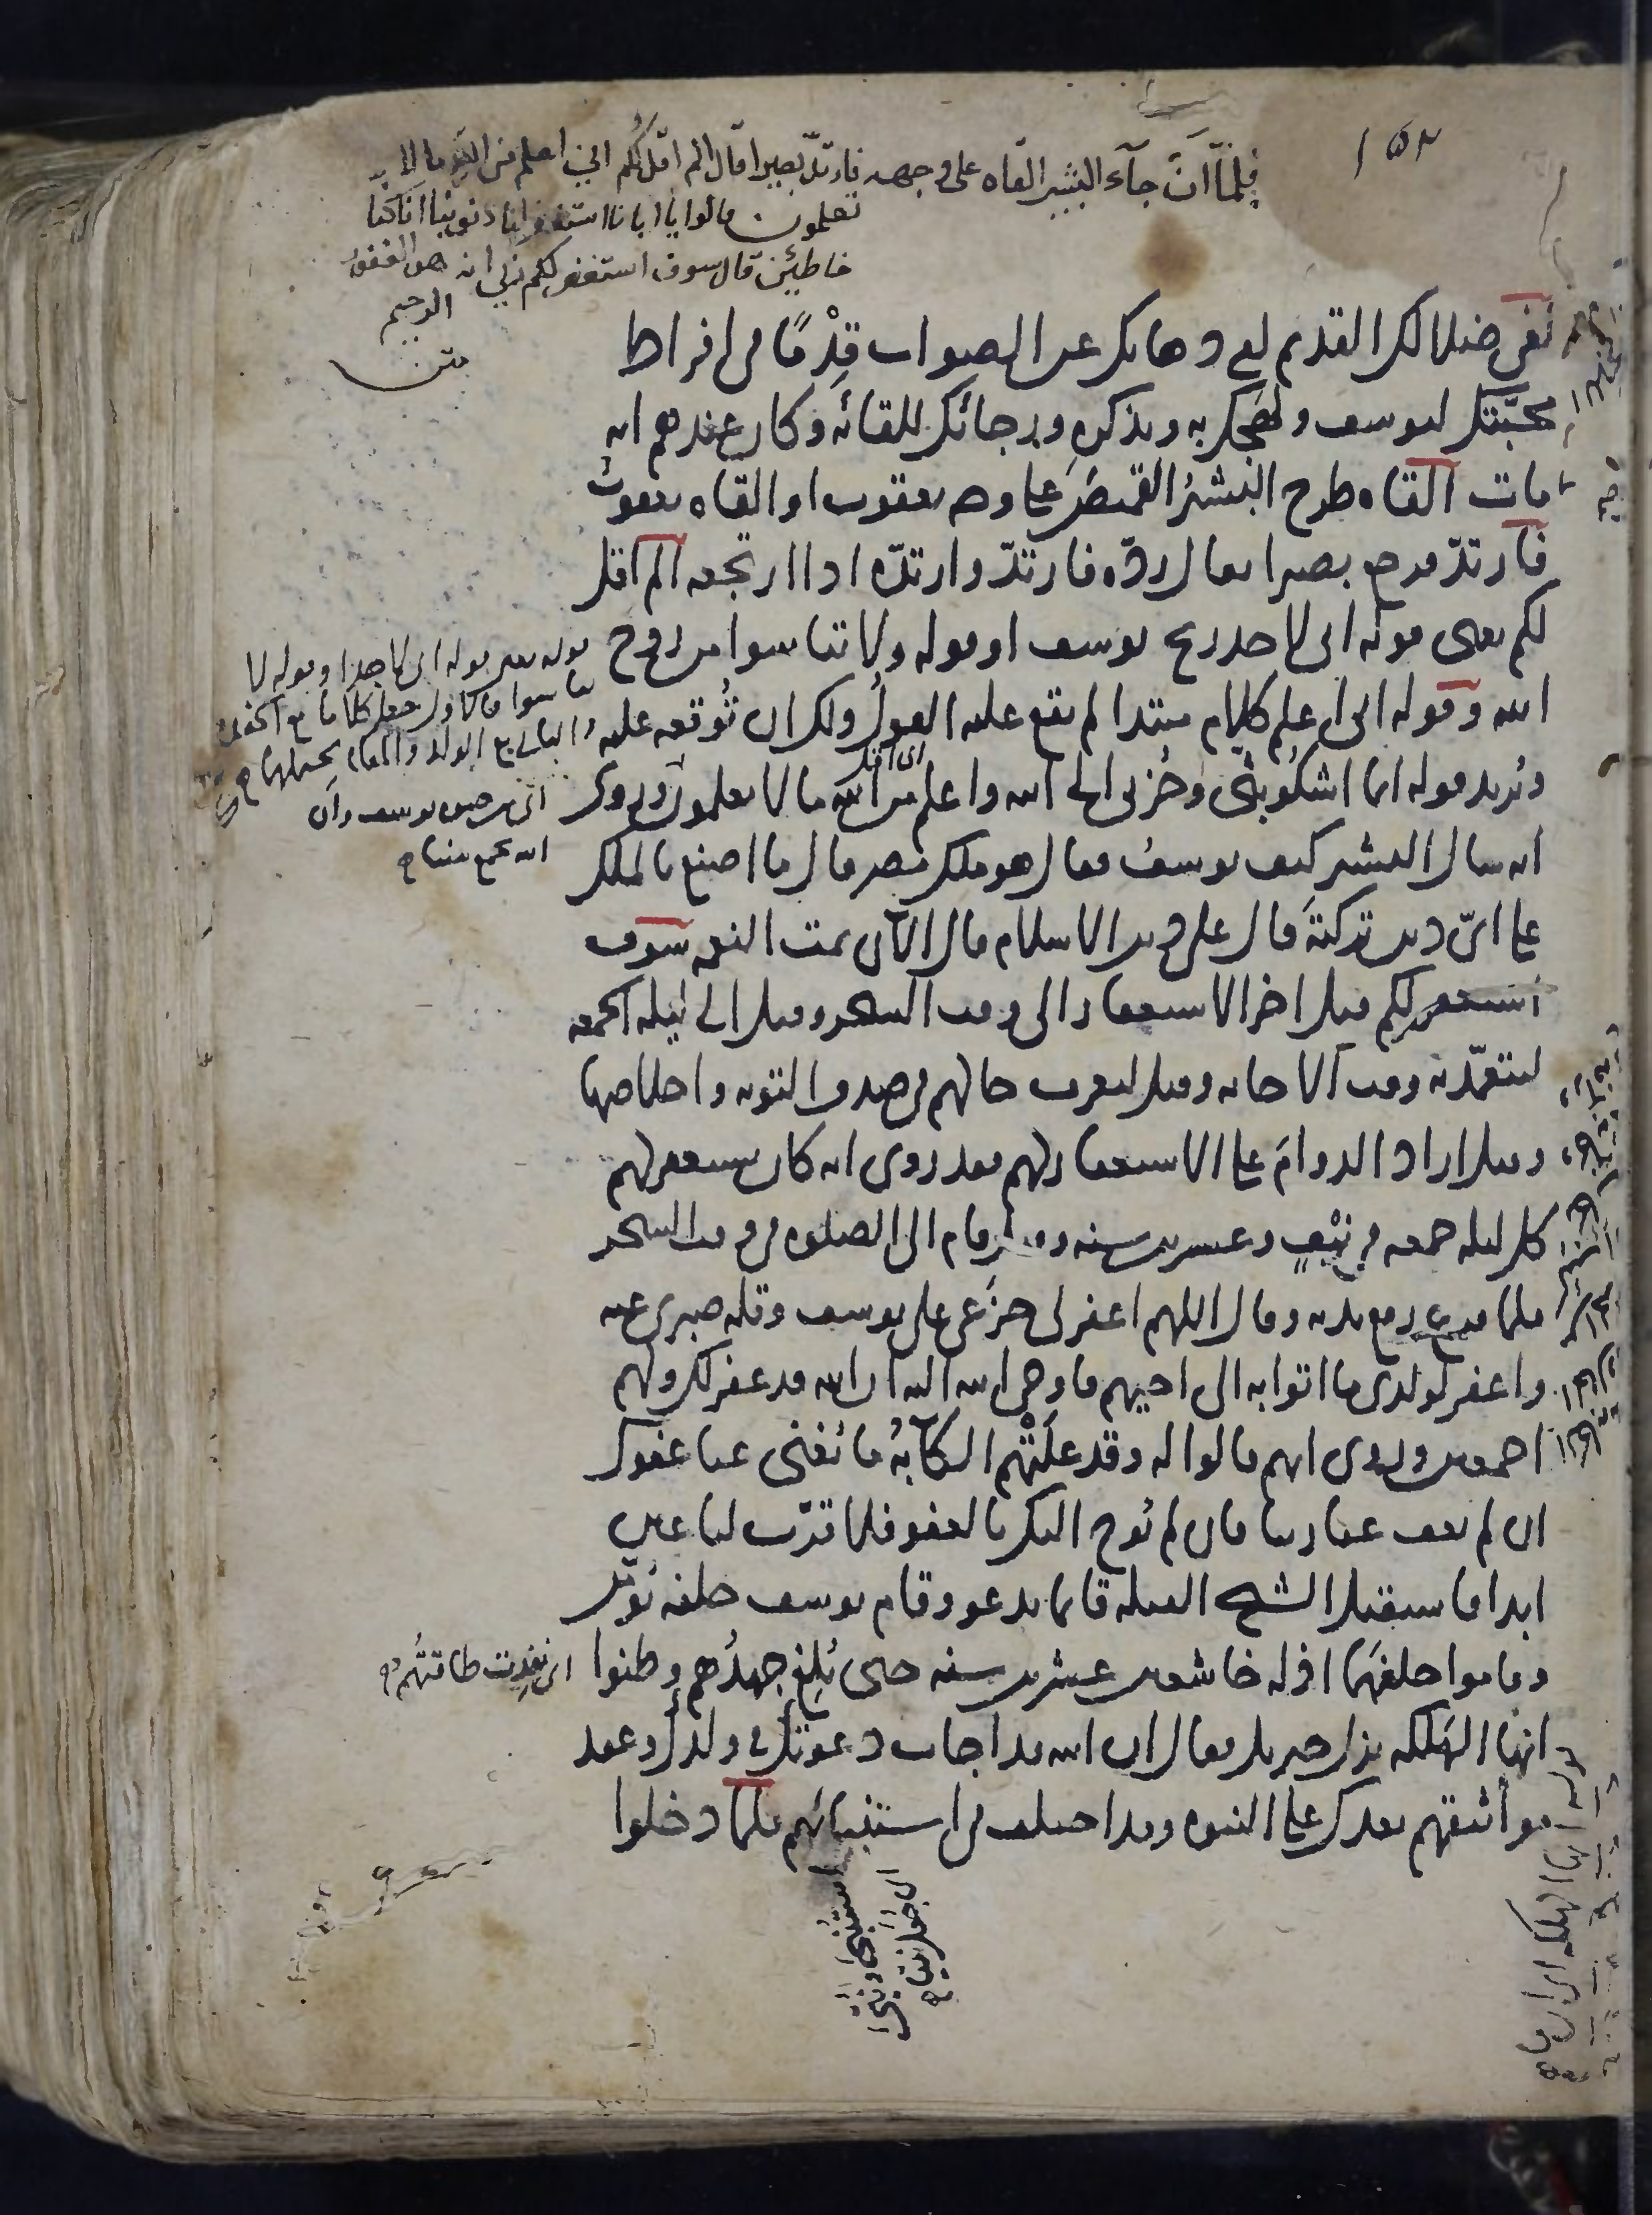 ١٥٢
فلما ان جآء البشير القاه على وجهه فارتد بصيرا قال الم اقل لكم اني اعلم من الله ما لا
تعلمون قالوا يا ابانا استغفر لنا ذنوبنا انا كنا
خاطئين قال سوف استغفر لكم ربي انه هو الغفور
الرحيم
متن
لفى ضلالك القديم لفى ذهابك عن الصواب قِدْمًا فى افراط
محبّتك ليوسف ولهجك به وبذكره ورجائك للقائه وكان عندهم انه
مات القاه طرح البشيرُ القميصَ على وجه يعقوب او القاه يعقوبُ
فارتدّ فرجع بصيرا يقال ردّه فارتدّ وارتدّه اذا ارتجعه الم اقل
لكم يعنى قوله انى لاجد ريح يوسف او قوله ولا تيأسوا من رَوح
الله وقوله انى اعلم كلام مبتدا لم يقع عليه القولُ ولك ان تُوقعه عليه
وتُريد قوله انما اشكُو بثى وحُزنى الى الله واعلم من الله ما لا تعلمون وروى
انه سال البشير كيف يوسفُ فقال هو ملك مصر قال ما اصنع بالملك
على اىّ دين تركتَه قال على دين الاسلام قال الآن تمت النعمة سوف
استغفر لكم قيل اخر الاستغفار الى وقت السحر وقيل الى ليلة الجمعة
ليتعمّد به وقت الاجابة وقيل ليعرف حالهم فى صدق التوبة واخلاصها
وقيل اراد الدوامَ على الاستغفار لهم فقد روى انه كان يستغفر لهم
كل ليلة جمعة فى نيّفٍ وعشرين سنة وقيل قام الى الصلوة فى وقت السحر
فلما فرغ رفع يديه وقال اللهم اغفر لى جزَعى على يوسف وقلة صبرى عنه
واغفر لولدى ما اتوا به الى اخيهم فاوحى الله اليه ان الله قد غفر لك ولهم
اجمعين وروى انهم قالوا له وقد علَتْهم الكآبةُ ما يُغنى عنا عفوك
ان لم يعف عنا ربنا فان لم يُوح اليك بالعفو فلا قرّت لنا عين
ابدا فاستقبل الشيخ القبلة قائما يدعو وقام يوسف خلفه يُؤمّن
وقاموا خلفهما اذلة خاشعين عشرين سنة حتى بُلِغ جهدُهم وظنوا
انها الهَلَكة نزل جبريل فقال ان الله قد اجاب دعوتك فى ولدك وعقد
مواثيقهم بعدك على النبوة وقد اختلف فى استنبائهم فلما دخلوا
قوله يعنى قوله انى لاجد او قوله لا
تيأسوا فالاول جعل كلاما مع
والثانى مع الولد والمقام يحتملهما
اى اقل
اى من حيوة يوسف وان
الله يجمع بيننا
اى نفِدت طاقتهم
اى جعل نبيا
قوله انها الهلكة اى ان